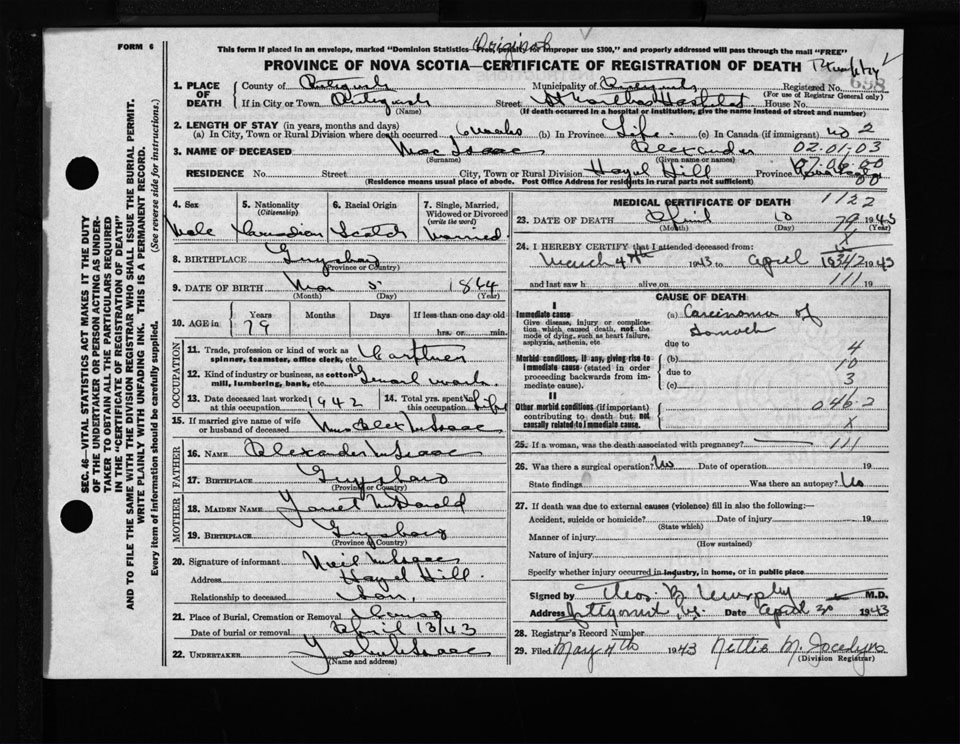 FORM 6
Original
This form if placed in an envelope, marked "Dominion Statistics Free, penalty for improper use $300," and properly addressed will pass through the mail "FREE"
PROVINCE OF NOVA SCOTIA—CERTIFICATE OF REGISTRATION OF DEATH
1. PLACE OF DEATH
County of Antigonish Municipality of Antigonish Registered No.
(For use of Registrar General only)
If in City or Town Antigonish Street St Marthas Hospital House No.
(Name) (If death occurred in a hospital or institution, give the name instead of street and number)
2. LENGTH OF STAY (in years, months and days)
(a) In City, Town or Rural Division where death occurred 6 weeks (b) In Province Life (c) In Canada (if immigrant) 2
3. NAME OF DECEASED Mac Isaac Alexander 02-01-03
(Surname) (Given name or names)
RESIDENCE No. Street City, Town or Rural Division Hazel Hill Province
(Residence means usual place of abode. Post Office Address for residents in rural parts not sufficient)
4. Sex Male
5. Nationality (Citizenship) Canadian
6. Racial Origin Scotch
7. Single, Married, Widowed or Divorced (write the word) Married
8. BIRTHPLACE Guysboro
(Province or Country)
9. DATE OF BIRTH Mar 5 1864
(Month) (Day) (Year)
10. AGE in Years 79 Months Days If less than one day old hrs. or min.
OCCUPATION
11. Trade, profession or kind of work as spinner, teamster, office clerk, etc. Carpenter
12. Kind of industry or business, as cotton mill, lumbering, bank, etc. General work
13. Date deceased last worked at this occupation 1942
14. Total yrs. spent in this occupation Life
15. If married give name of wife or husband of deceased Mrs Alex McIsaac
FATHER
16. NAME Alexander McIsaac
17. BIRTHPLACE Guysboro
(Province or Country)
MOTHER
18. MAIDEN NAME Janet McDonald
19. BIRTHPLACE Guysboro
(Province or Country)
20. Signature of informant Neil McIsaac
Address Hazel Hill
Relationship to deceased Son
21. Place of Burial, Cremation or Removal Canso
Date of burial or removal April 13/43
22. UNDERTAKER
(Name and address)
MEDICAL CERTIFICATE OF DEATH 1122
23. DATE OF DEATH April 10 79 1943
(Month) (Day) (Year)
24. I HEREBY CERTIFY that I attended deceased from:
March 4th 1943 to April 1943
and last saw h alive on 111 19
CAUSE OF DEATH
I
Immediate cause
Give disease, injury or complication which caused death, not the mode of dying, such as heart failure, asphyxia, asthenia, etc.
(a) Carcinoma of Stomach
due to 4
Morbid conditions, if any, giving rise to immediate cause (stated in order proceeding backwards from immediate cause).
(b) 10
due to 3
(c)
II
Other morbid conditions (if important) contributing to death but not causally related to immediate cause.
046-2
X
25. If a woman, was the death associated with pregnancy? 111
26. Was there a surgical operation? No Date of operation 19
State findings Was there an autopsy? No
27. If death was due to external causes (violence) fill in also the following:—
Accident, suicide or homicide? Date of injury 19
(State which)
Manner of injury
(How sustained)
Nature of injury
Specify whether injury occurred in industry, in home, or in public place
Signed by Thos. B. Murphy M.D.
Address Antigonish N.S. Date April 30 1943
28. Registrar's Record Number
29. Filed May 4th 1943 Nettie M. Jocelyn
(Division Registrar)
SEC. 46—VITAL STATISTICS ACT MAKES IT THE DUTY
OF THE UNDERTAKER OR PERSON ACTING AS UNDER-
TAKER TO OBTAIN ALL THE PARTICULARS REQUIRED
IN THE "CERTIFICATE OF REGISTRATION OF DEATH"
AND TO FILE THE SAME WITH THE DIVISION REGISTRAR WHO SHALL ISSUE THE BURIAL PERMIT.
WRITE PLAINLY WITH UNFADING INK. THIS IS A PERMANENT RECORD.
Every item of information should be carefully supplied. (See reverse side for instructions.)